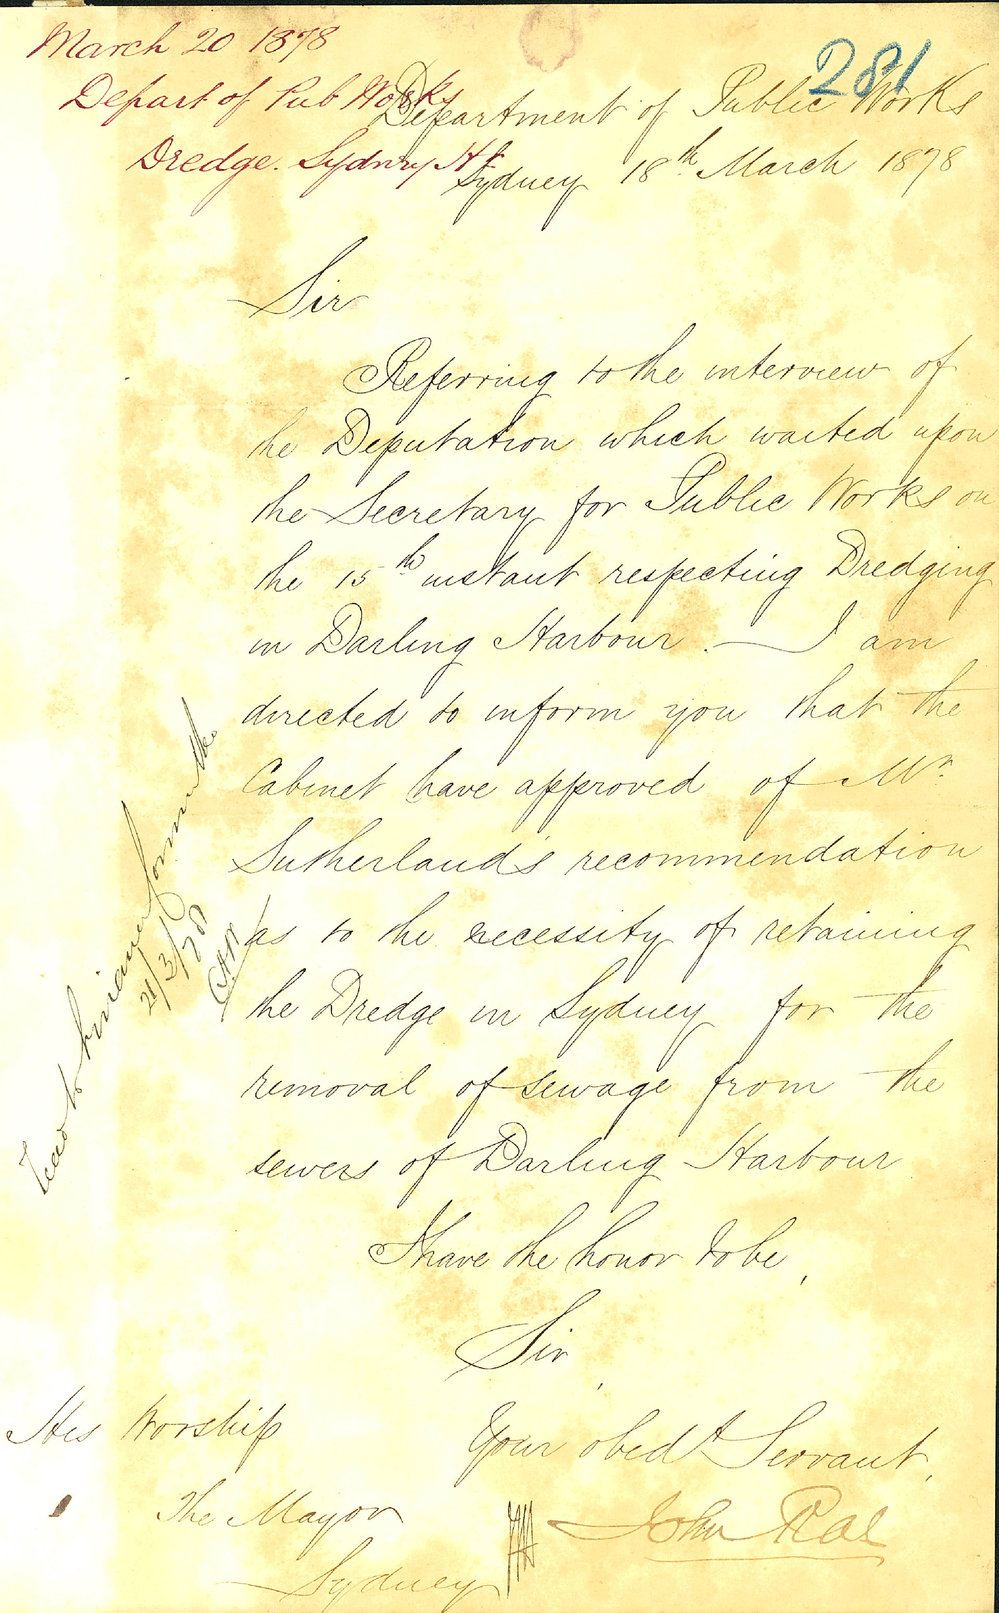 March 20 1878
Depart of Pub Works
Dredge. Sydney Hr
281
Department of Public Works
Sydney 18th March 1878
Sir
Referring to the interview of
the Deputation which waited upon
the Secretary for Public Works on
the 15th instant respecting Dredging
in Darling Harbour. — I am
directed to inform you that the
Cabinet have approved of Mr.
Sutherland's recommendation
as to the necessity of retaining
the Dredge in Sydney for the
removal of sewage from the
sewers of Darling Harbour
I have the honor to be,
Sir,
Your obedt Servant,
John Rae
His Worship
The Mayor
Sydney
the
21/3/78